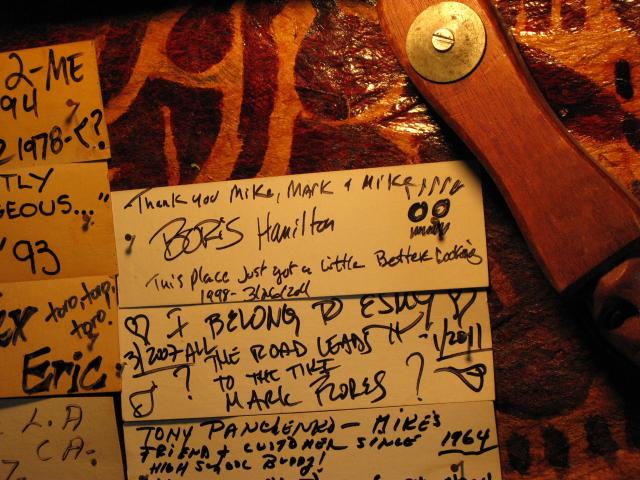 2-ME
94
1978-<?
TLY
GEOUS..."
'93
EX toro, toro,
toro!
Eric
L.A
CA.
Thank you Mike, Mark & Mike !!!!
BORIS Hamilton
This Place Just got a Little Better Looking
1998-
I BELONG TO
3/2007 ALL THE ROAD LEADS 1/2011
? TO THE TIKI ?
MARK FLORES
TONY PANCZENKO - MIKE'S
FRIEND & CUSTOMER SINCE 1964
HIGH SCHOOL BUDDY!